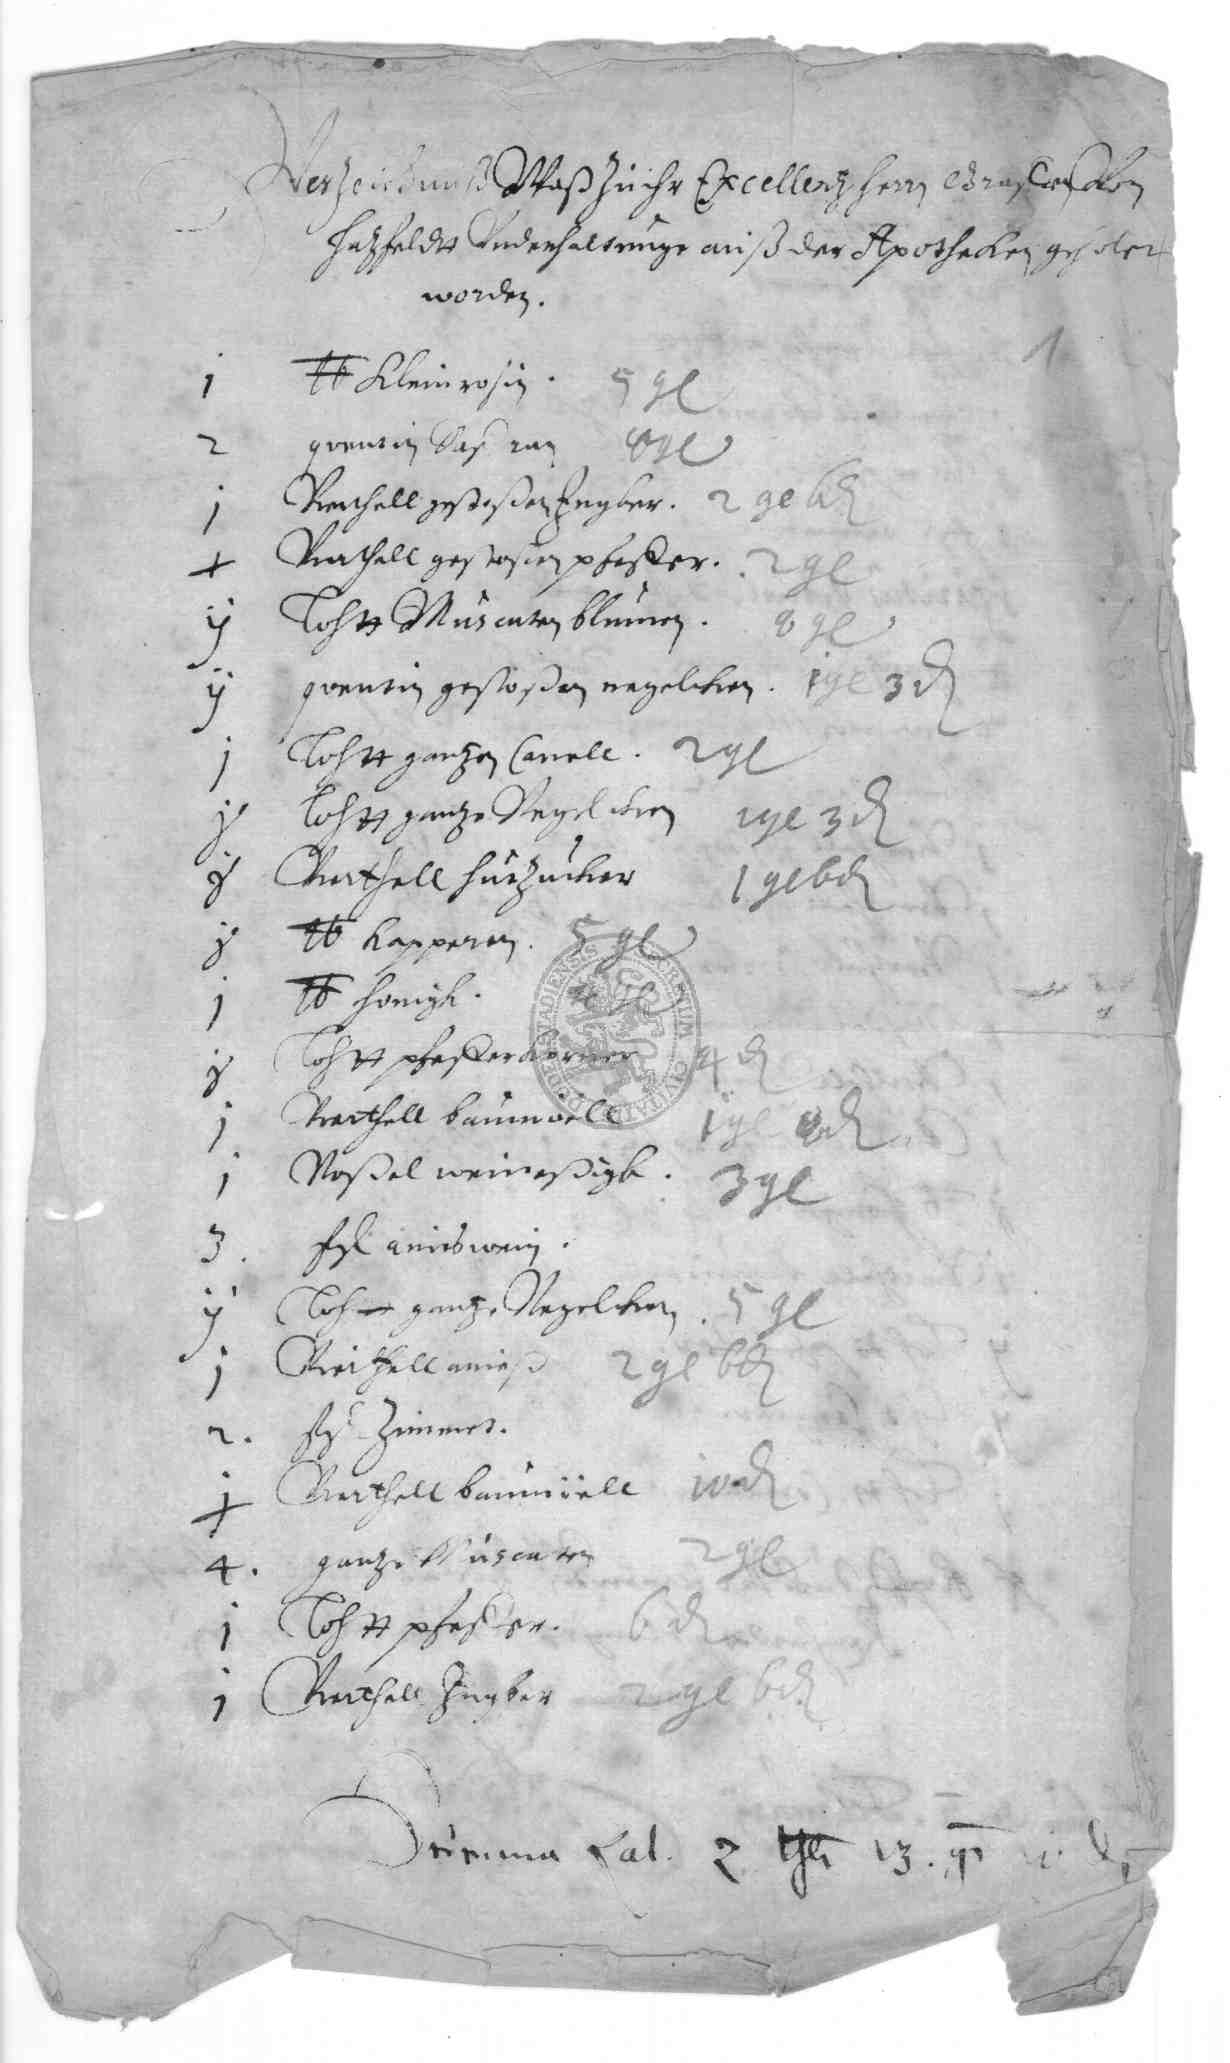 Verzeichnuß Waß zu ihr Excellentz herrn Graffen Von
hatzfeldtt Underhaltunge auß der Apotheken geholet
worden.
1
j ℔ kleinrosin. 5 gl
2 quentin Saffran 8 gl
j Vierthell gestoßen Jngber. 2 gl 6 ₰
Vierthell gestoßen pfeffer. 2 gl
ij Lohtt Muscaten blumen. 8 gl
ij quentin gestoßen negelcken. 1 gl 3 ₰
j Lohtt gantzen Canell. 2 gl
Lohtt gantze Negelcken 1 gl 3 ₰
Vierthell hutzucker 1 gl 6 ₰
℔ kapperen. 5 gl
j ℔ honigk.
Lohtt pfefferkorner 4 ₰
j Vierthell baumoell 1 gl 8 ₰
j Noßel weineßigk. 3 gl
3. aniswein.
ij Loht gantze Negelcken. 5 gl
j Vierthell anieß 2 gl 6 ₰
2. Zimmet.
Vierthell baumoell 10 ₰
4. gantze Muscaten 2 gl
j Lohtt pfeffer. 6 ₰
j Vierthell Jngber 2 gl 6 ₰
Summa Lat. 2 thlr 13. gr